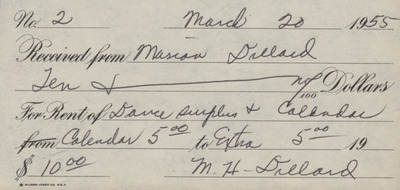 No. 2 March 20 1955
Received from Marion Dillard
Ten & no/100 Dollars
For Rent of Dance surplus & Calendar
from Calendar 5.00 to Extra 5.00 19
$ 10.00 M. H. Dillard